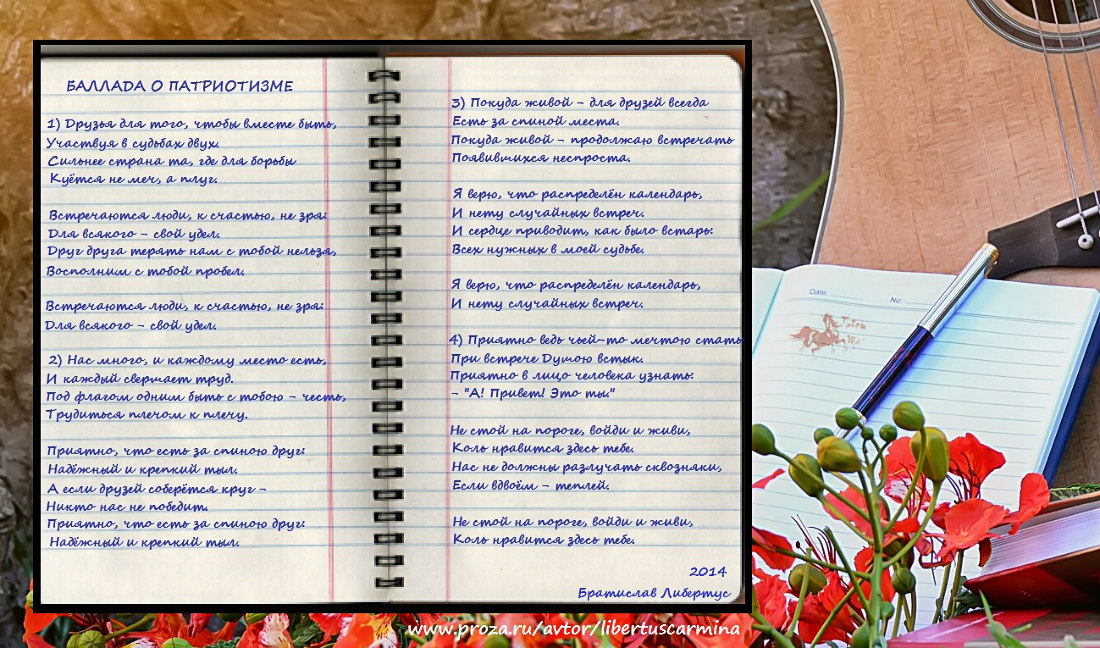 БАЛЛАДА О ПАТРИОТИЗМЕ
1) Друзья для того, чтобы вместе быть,
Участвуя в судьбах двух.
Сильнее страна та, где для борьбы
Куётся не меч, а плуг.
Встречаются люди, к счастью, не зря:
Для всякого – свой удел.
Друг друга терять нам с тобой нельзя,
Восполним с тобой пробел.
Встречаются люди, к счастью, не зря:
Для всякого – свой удел.
2) Нас много, и каждому место есть,
И каждый свершает труд.
Под флагом одним быть с тобою – честь,
Трудиться плечом к плечу.
Приятно, что есть за спиною друг:
Надёжный и крепкий тыл.
А если друзей соберётся круг –
Никто нас не победит.
Приятно, что есть за спиною друг:
Надёжный и крепкий тыл.
3) Покуда живой – для друзей всегда
Есть за спиной места.
Покуда живой – продолжаю встречать
Появившихся неспроста.
Я верю, что распределён календарь,
И нету случайных встреч.
И сердце приводит, как было встарь:
Всех нужных в моей судьбе.
Я верю, что распределён календарь,
И нету случайных встреч.
4) Приятно ведь чьей-то мечтою стать
При встрече Душою встык.
Приятно в лицо человека узнать:
– "А! Привет! Это ты!"
Не стой на пороге, войди и живи,
Коль нравится здесь тебе.
Нас не должны разлучать сквозняки,
Если вдвоём – теплей.
Не стой на пороге, войди и живи,
Коль нравится здесь тебе.
2014
Братислав Либертус
www.proza.ru/avtor/libertuscarmina
Date:
No: